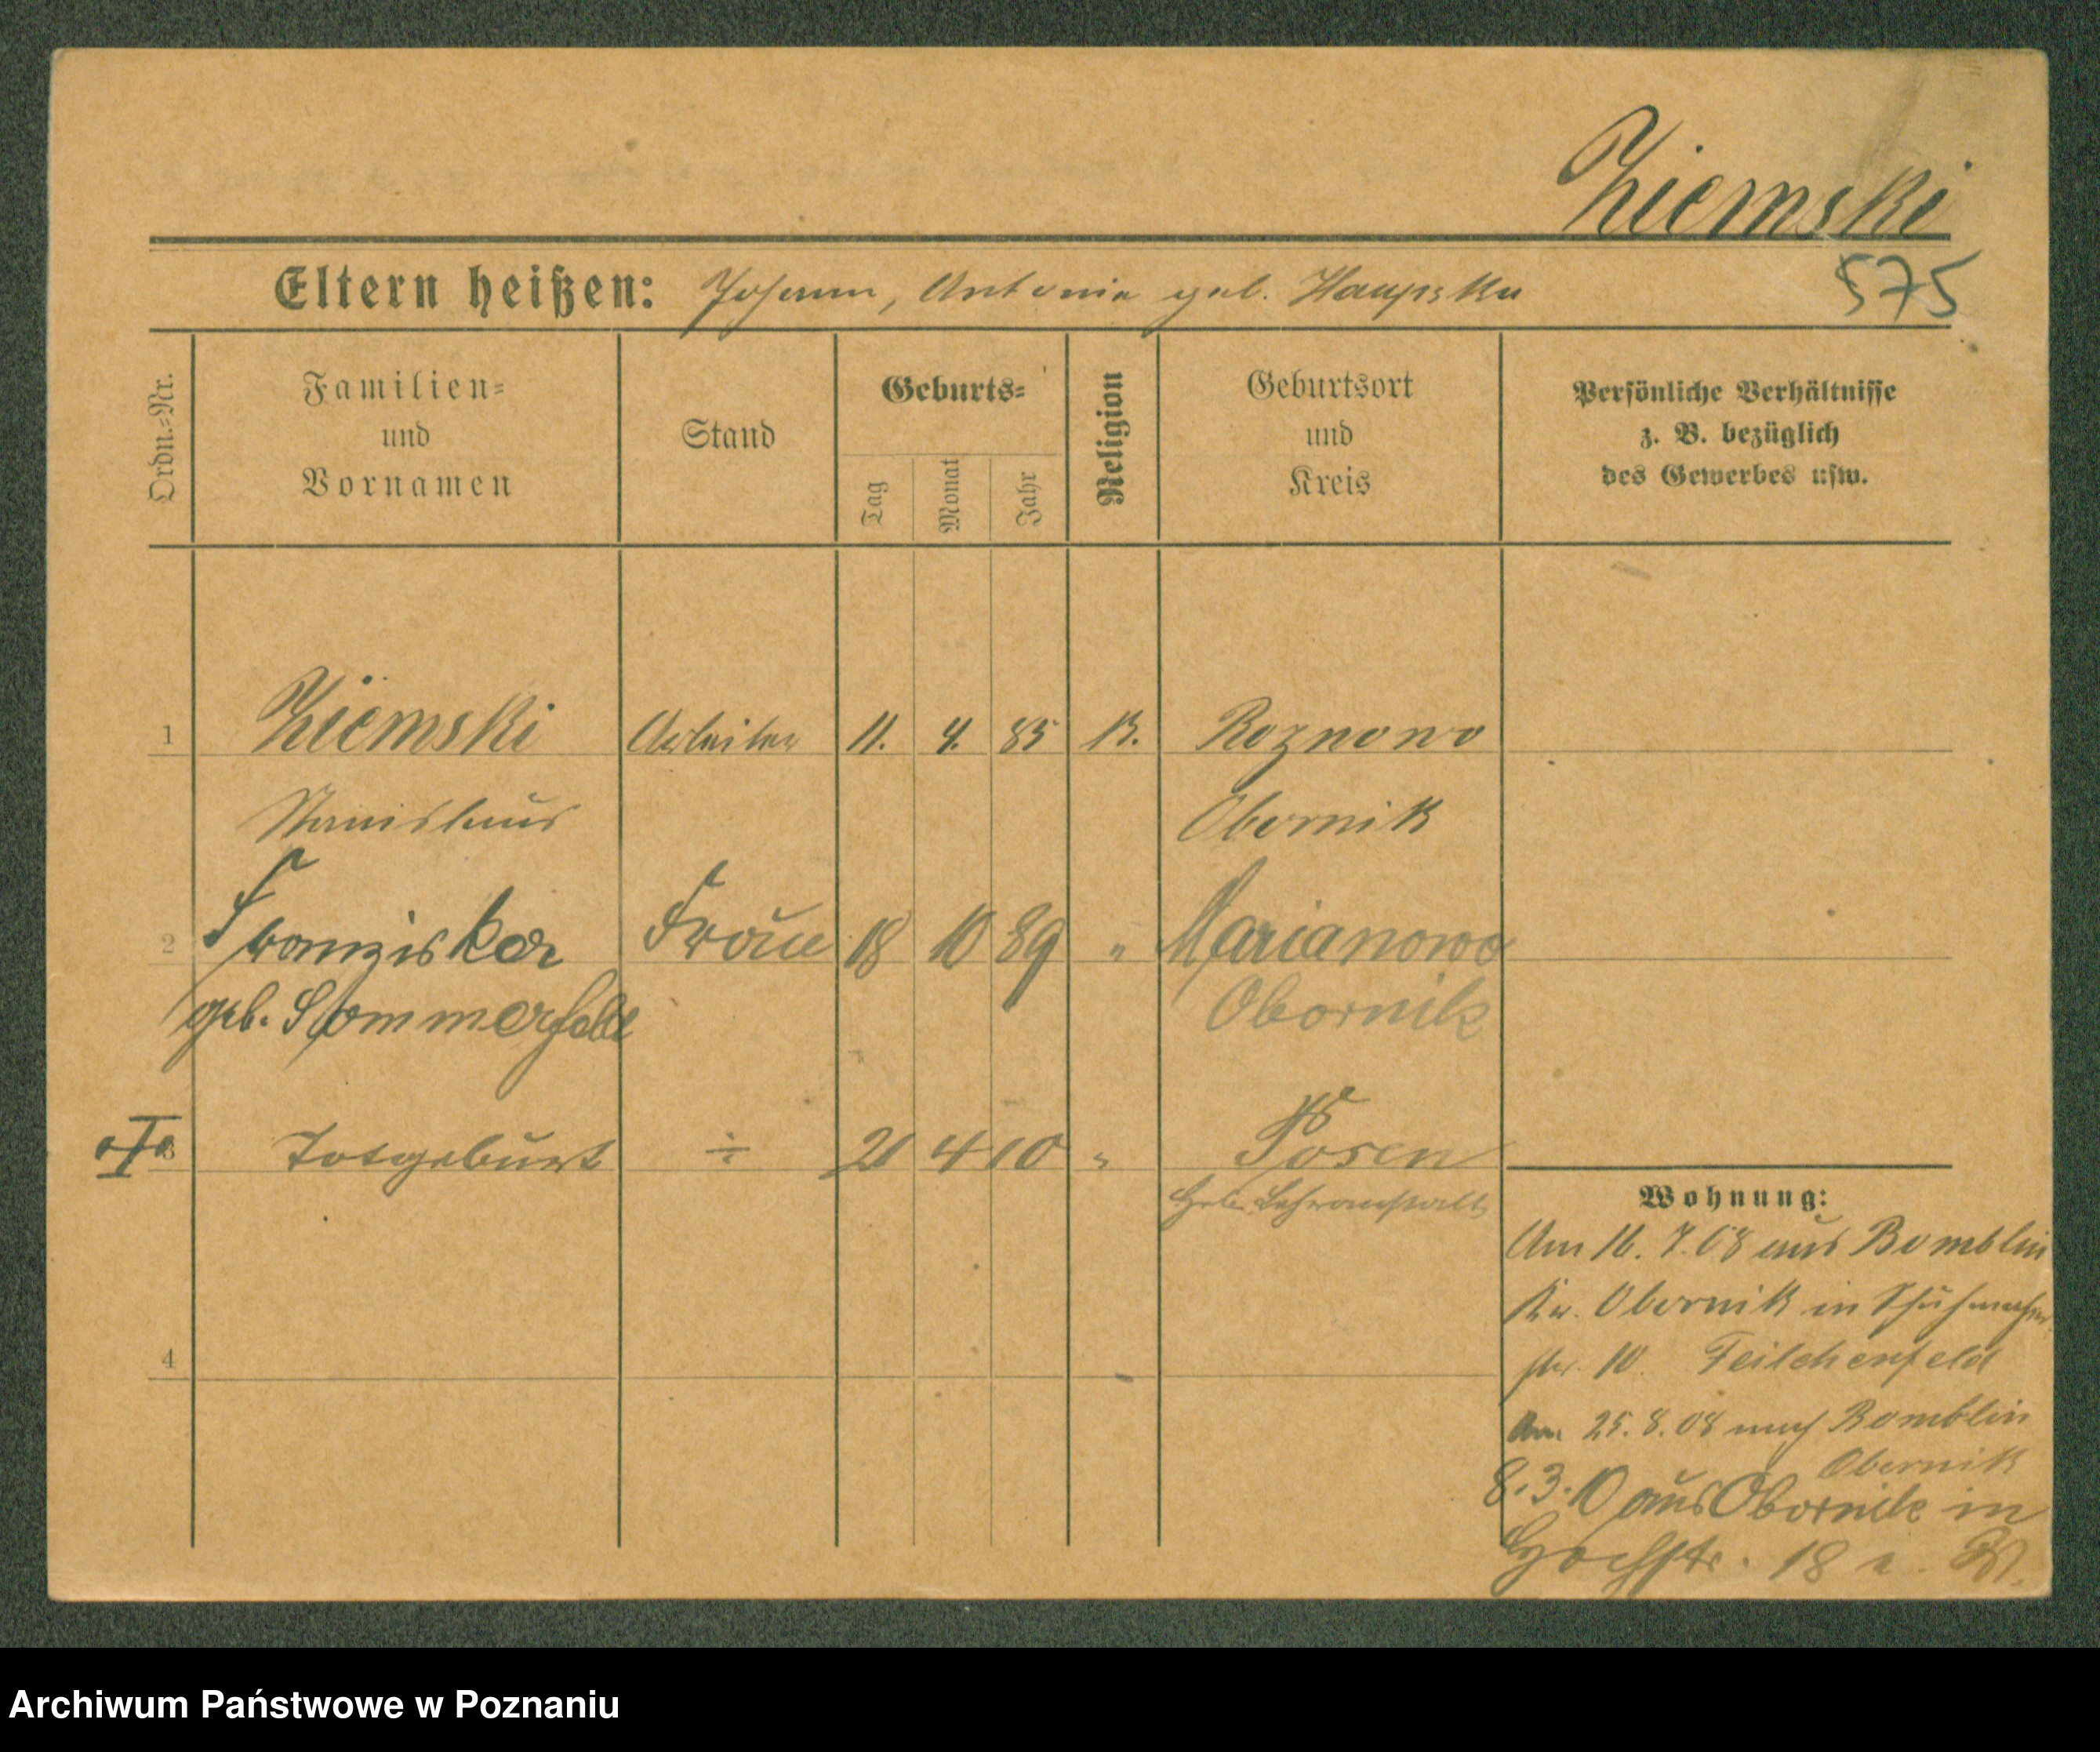 Ziemski
Eltern heißen: Johann, Antonia geb. Haupska
575
Ordn.-Nr.
Familien-
und
Vornamen
Stand
Geburts-
Tag
Monat
Jahr
Religion
Geburtsort
und
Kreis
Persönliche Verhältnisse
z. B. bezüglich
des Gewerbes usw.
1 Ziemski Arbeiter 11. 4. 85 K. Roznowo
Stanislaus Obornik
2 Franziska Frau 18 10 89 " Marianowo
geb. Sommerfeld Obornik
3 Totgeburt ÷ 21 4 10 " Posen
Heb. Lehranstalt
Wohnung:
Am 16. 7. 08 aus Bomblin
Kr. Obornik in Schuhmacher
str. 10. Feilchenfeld
Am 25. 8. 08 nach Bomblin
Obornik
8. 3. 10 aus Obornik in
Hochstr. 18
4
Archiwum Państwowe w Poznaniu